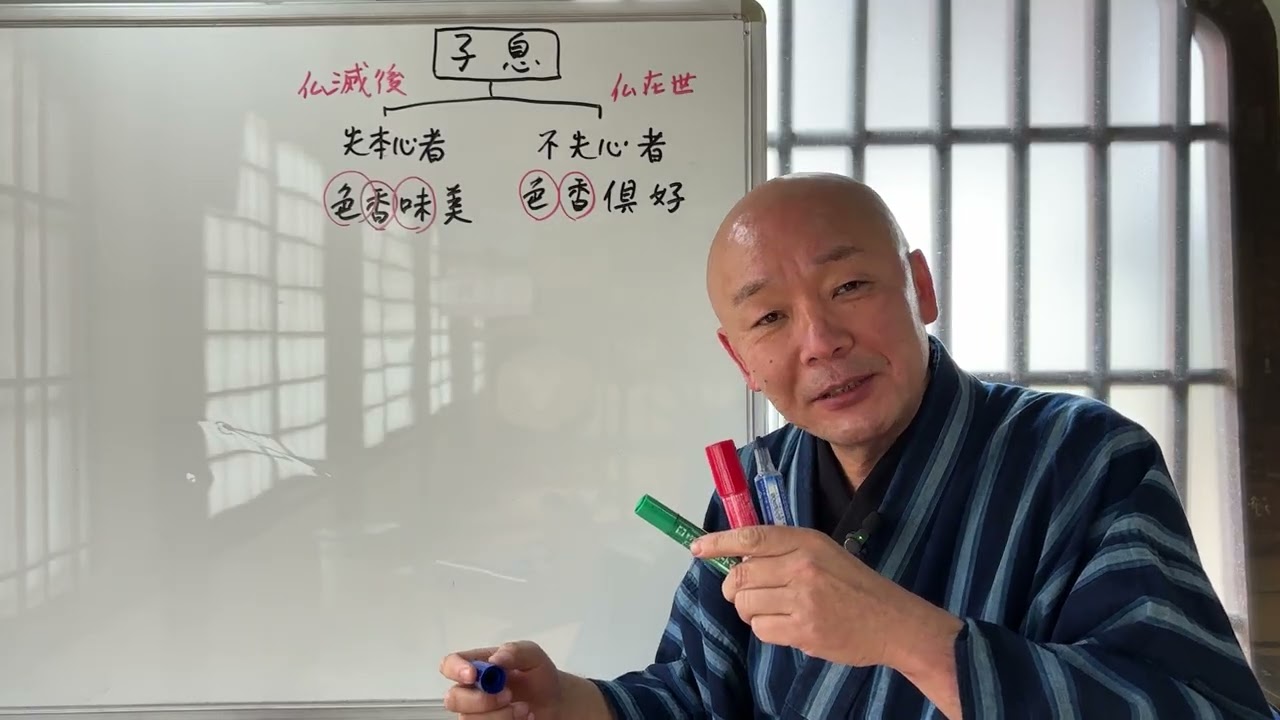 子息
仏滅後
仏在世
失本心者
不失心者
色香味美
色香倶好